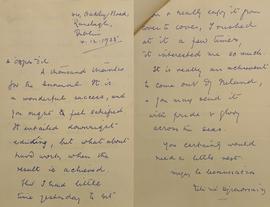 Oakley Road,
Ranelagh,
Dublin
A thousand thanks
for the annual. It is
a wonderful success, and
you ought to feel satisfied
It entailed downright
but what about
hard work, when the
result is achieved.
I had little
time yesterday to sit
in & really enjoy it from
cover to cover, I rushed
at it a few times,
it interested me so much.
It is really an achievement
to come out of Ireland,
& you may send it
with pride & glory
across the seas.
You certainly would
need a little rest.